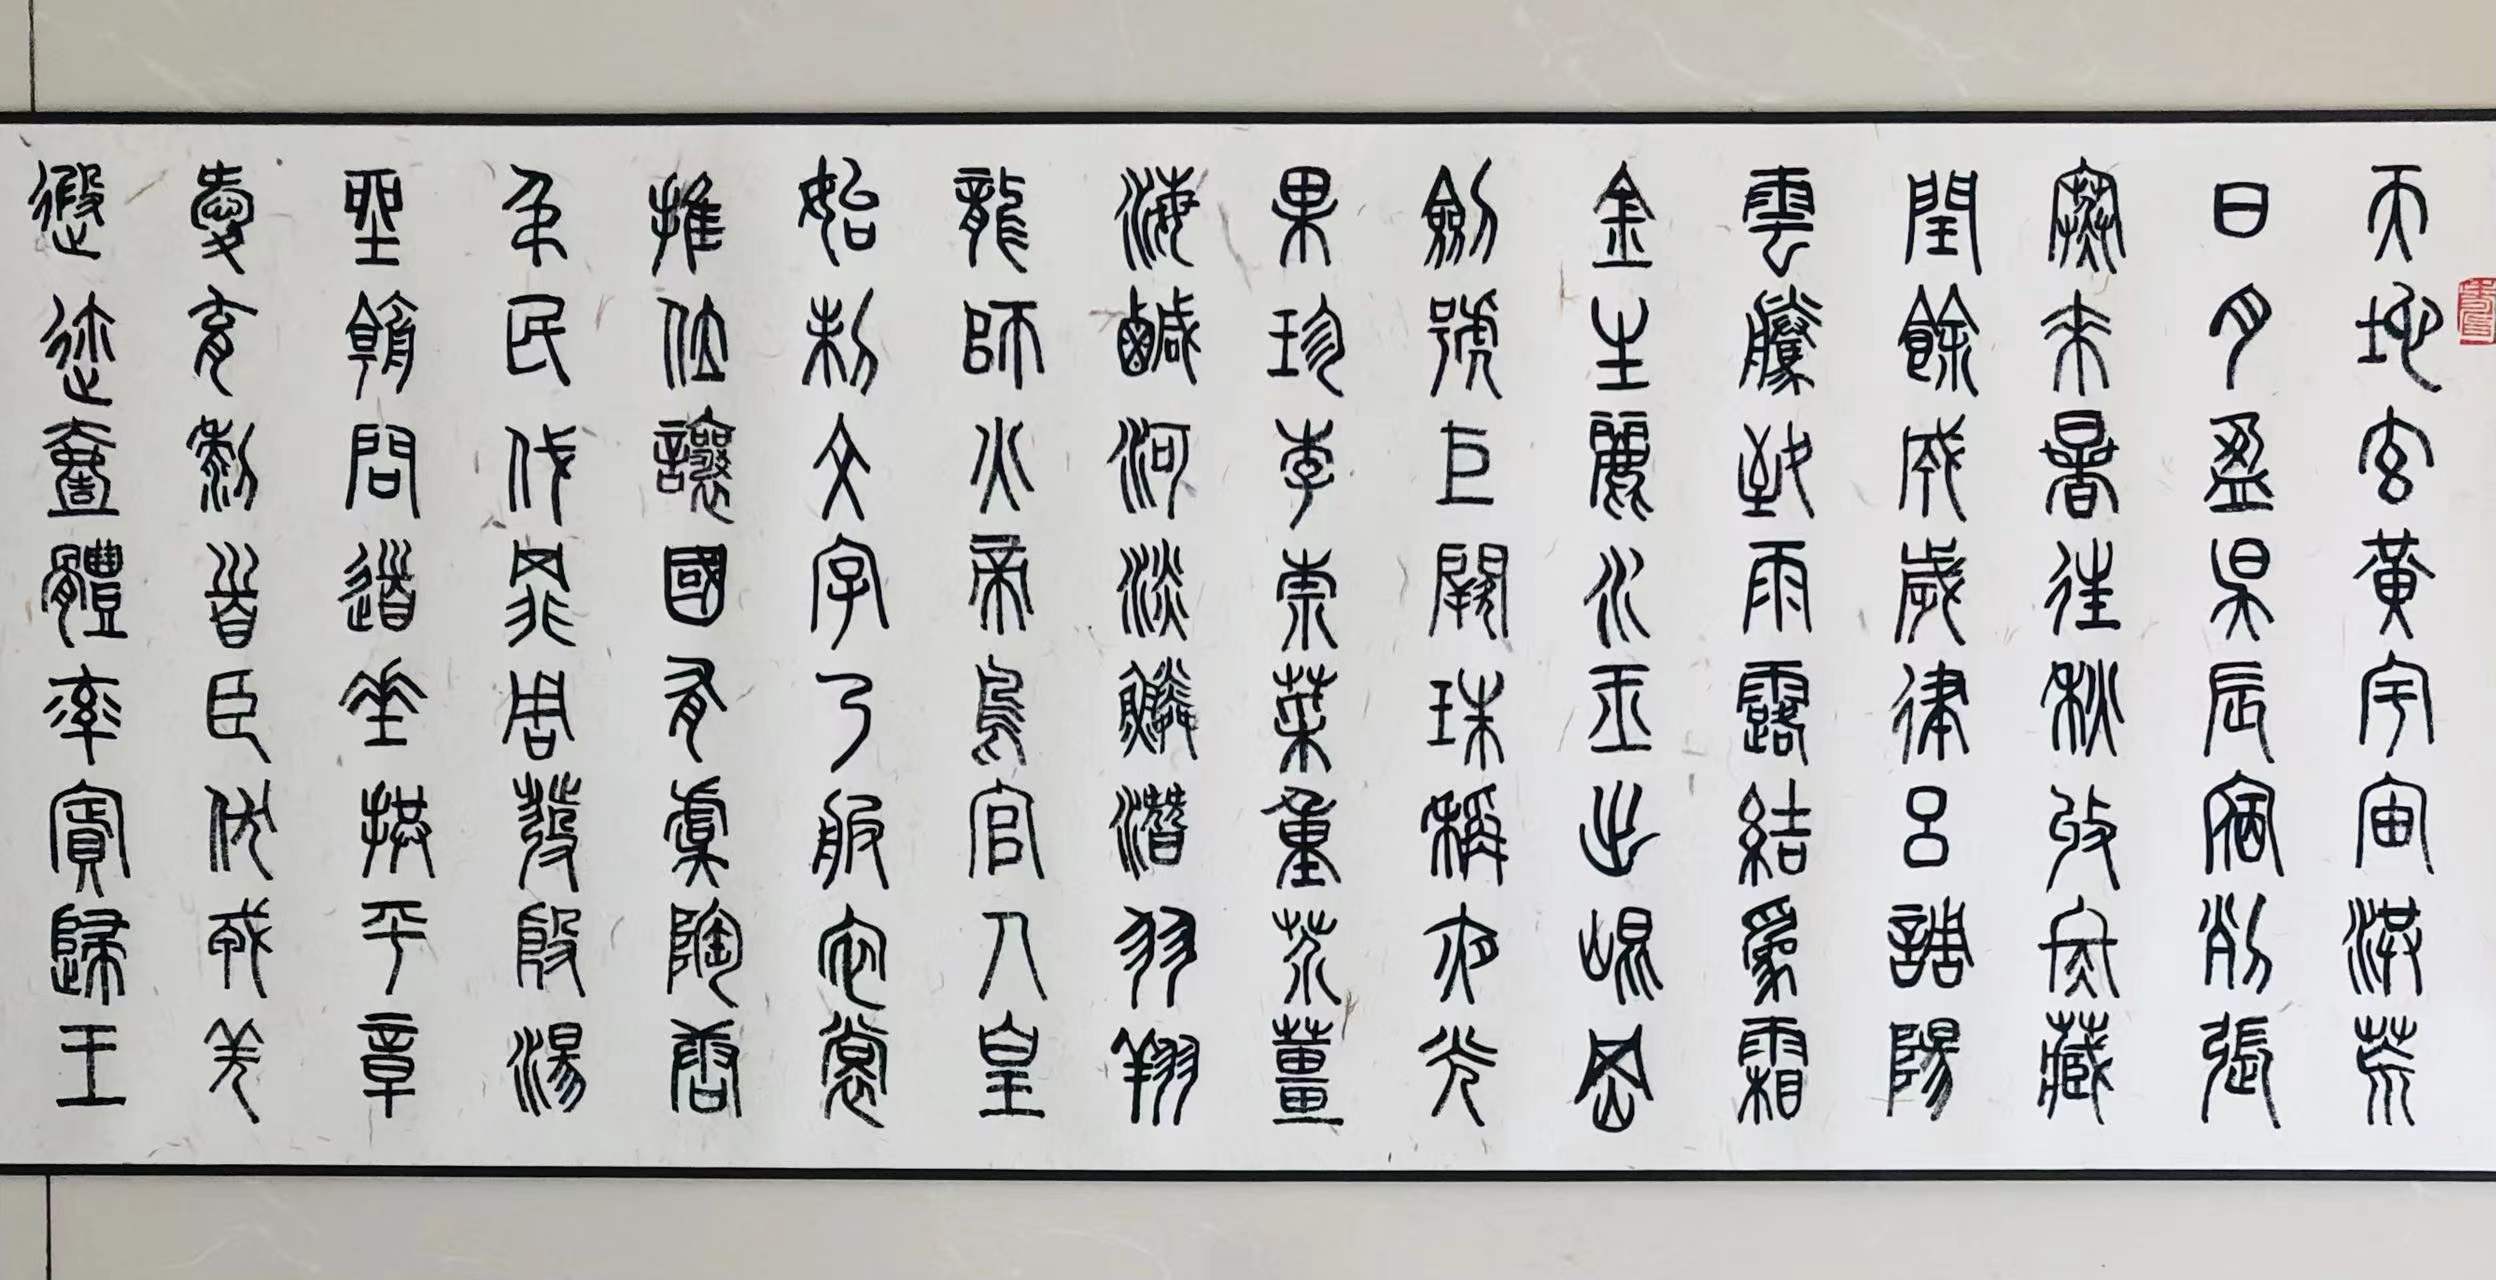 天地玄黃宇宙洪荒
日月盈昃辰宿列張
寒來暑往秋收冬藏
閏餘成歲律呂調陽
雲騰致雨露結爲霜
金生麗水玉出崐岡
劍號巨闕珠稱夜光
果珍李柰菜重芥薑
海鹹河淡鱗潛羽翔
龍師火帝鳥官人皇
始制文字乃服衣裳
推位讓國有虞陶唐
弔民伐罪周發殷湯
坐朝問道垂拱平章
愛育黎首臣伏戎羌
遐邇壹體率賓歸王